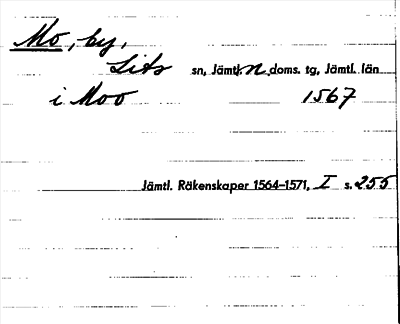 Mo, by,
Lits sn, Jämtl. n. doms. tg, Jämtl. län
i Moo 1567
Jämtl. Räkenskaper 1564–1571, I s. 255